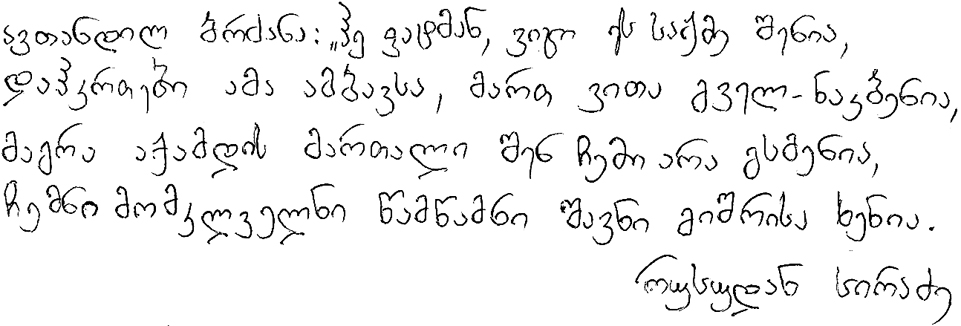 ავთანდილ ბრძანა: „ჰე ფატმან, ვიცი ეს საქმე შენია,
დაჰკრთები ამა ამბავსა, მართ ვითა გველ-ნაკბენია,
მაგრა აქამდის მართალი შენ ჩემი არა გსმენია,
ჩემნი მომკლველნი წამწამნი შავნი გიშრისა ხენია.
რუსუდან სირაძე